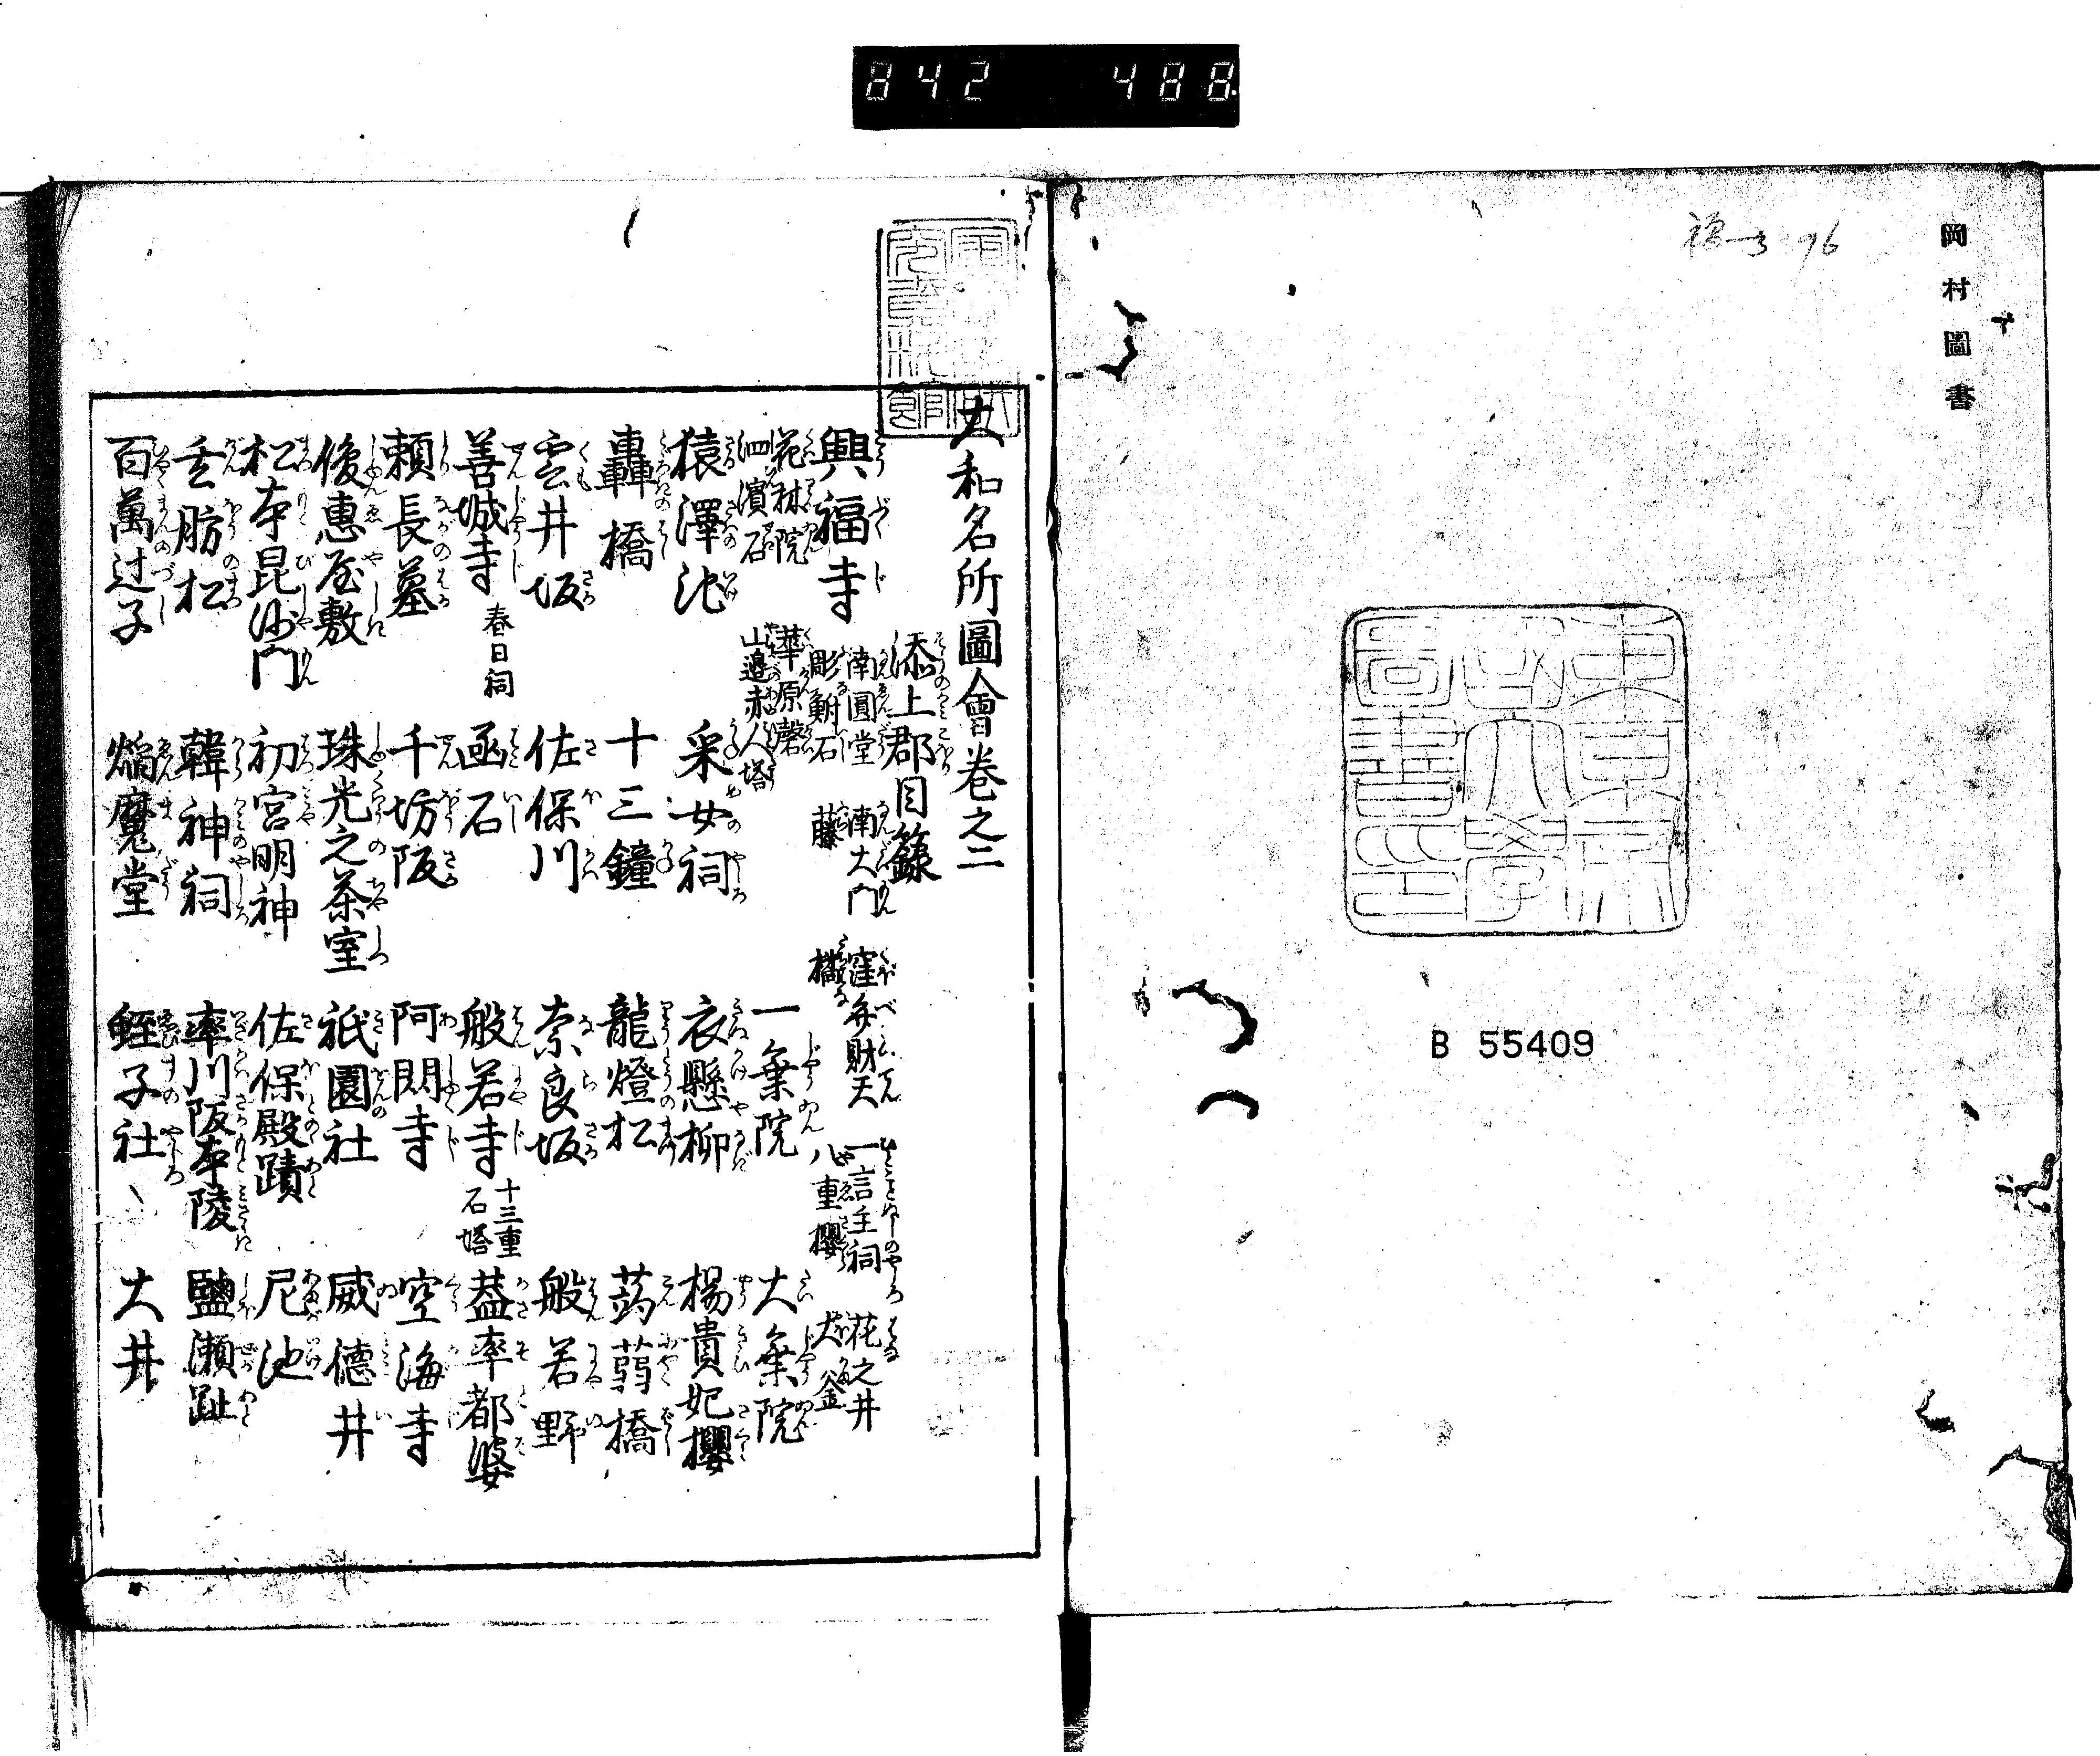 842 488
岡村圖書
東京帝國大學圖書印
B 55409
大和名所圖會卷之二
添上郡目錄
興福寺 南圓堂 南大門 窪弁財天 一言主祠 花之井
彫鮒石 藤 橘 八重櫻 大釜
花林院 華原磬 一乗院 大乗院
泗濱石 山邉赤人塔
猿澤池 采女祠 衣懸柳 楊貴妃櫻
轟橋 十三鐘 龍燈松 蒟蒻橋
雲井坂 佐保川 奈良坂 般若野
善城寺 春日祠 函石 般若寺 十三重石塔 葢率都婆
頼長墓 千坊阪 阿閦寺 空海寺
俊惠屋敷 珠光之茶室 祇園社 威德井
松本毘沙門 初宮明神 佐保殿蹟 尼池
玄肪松 韓神祠 率川阪本陵 鹽瀬趾
百萬辻子 焔魔堂 蛭子社 大井